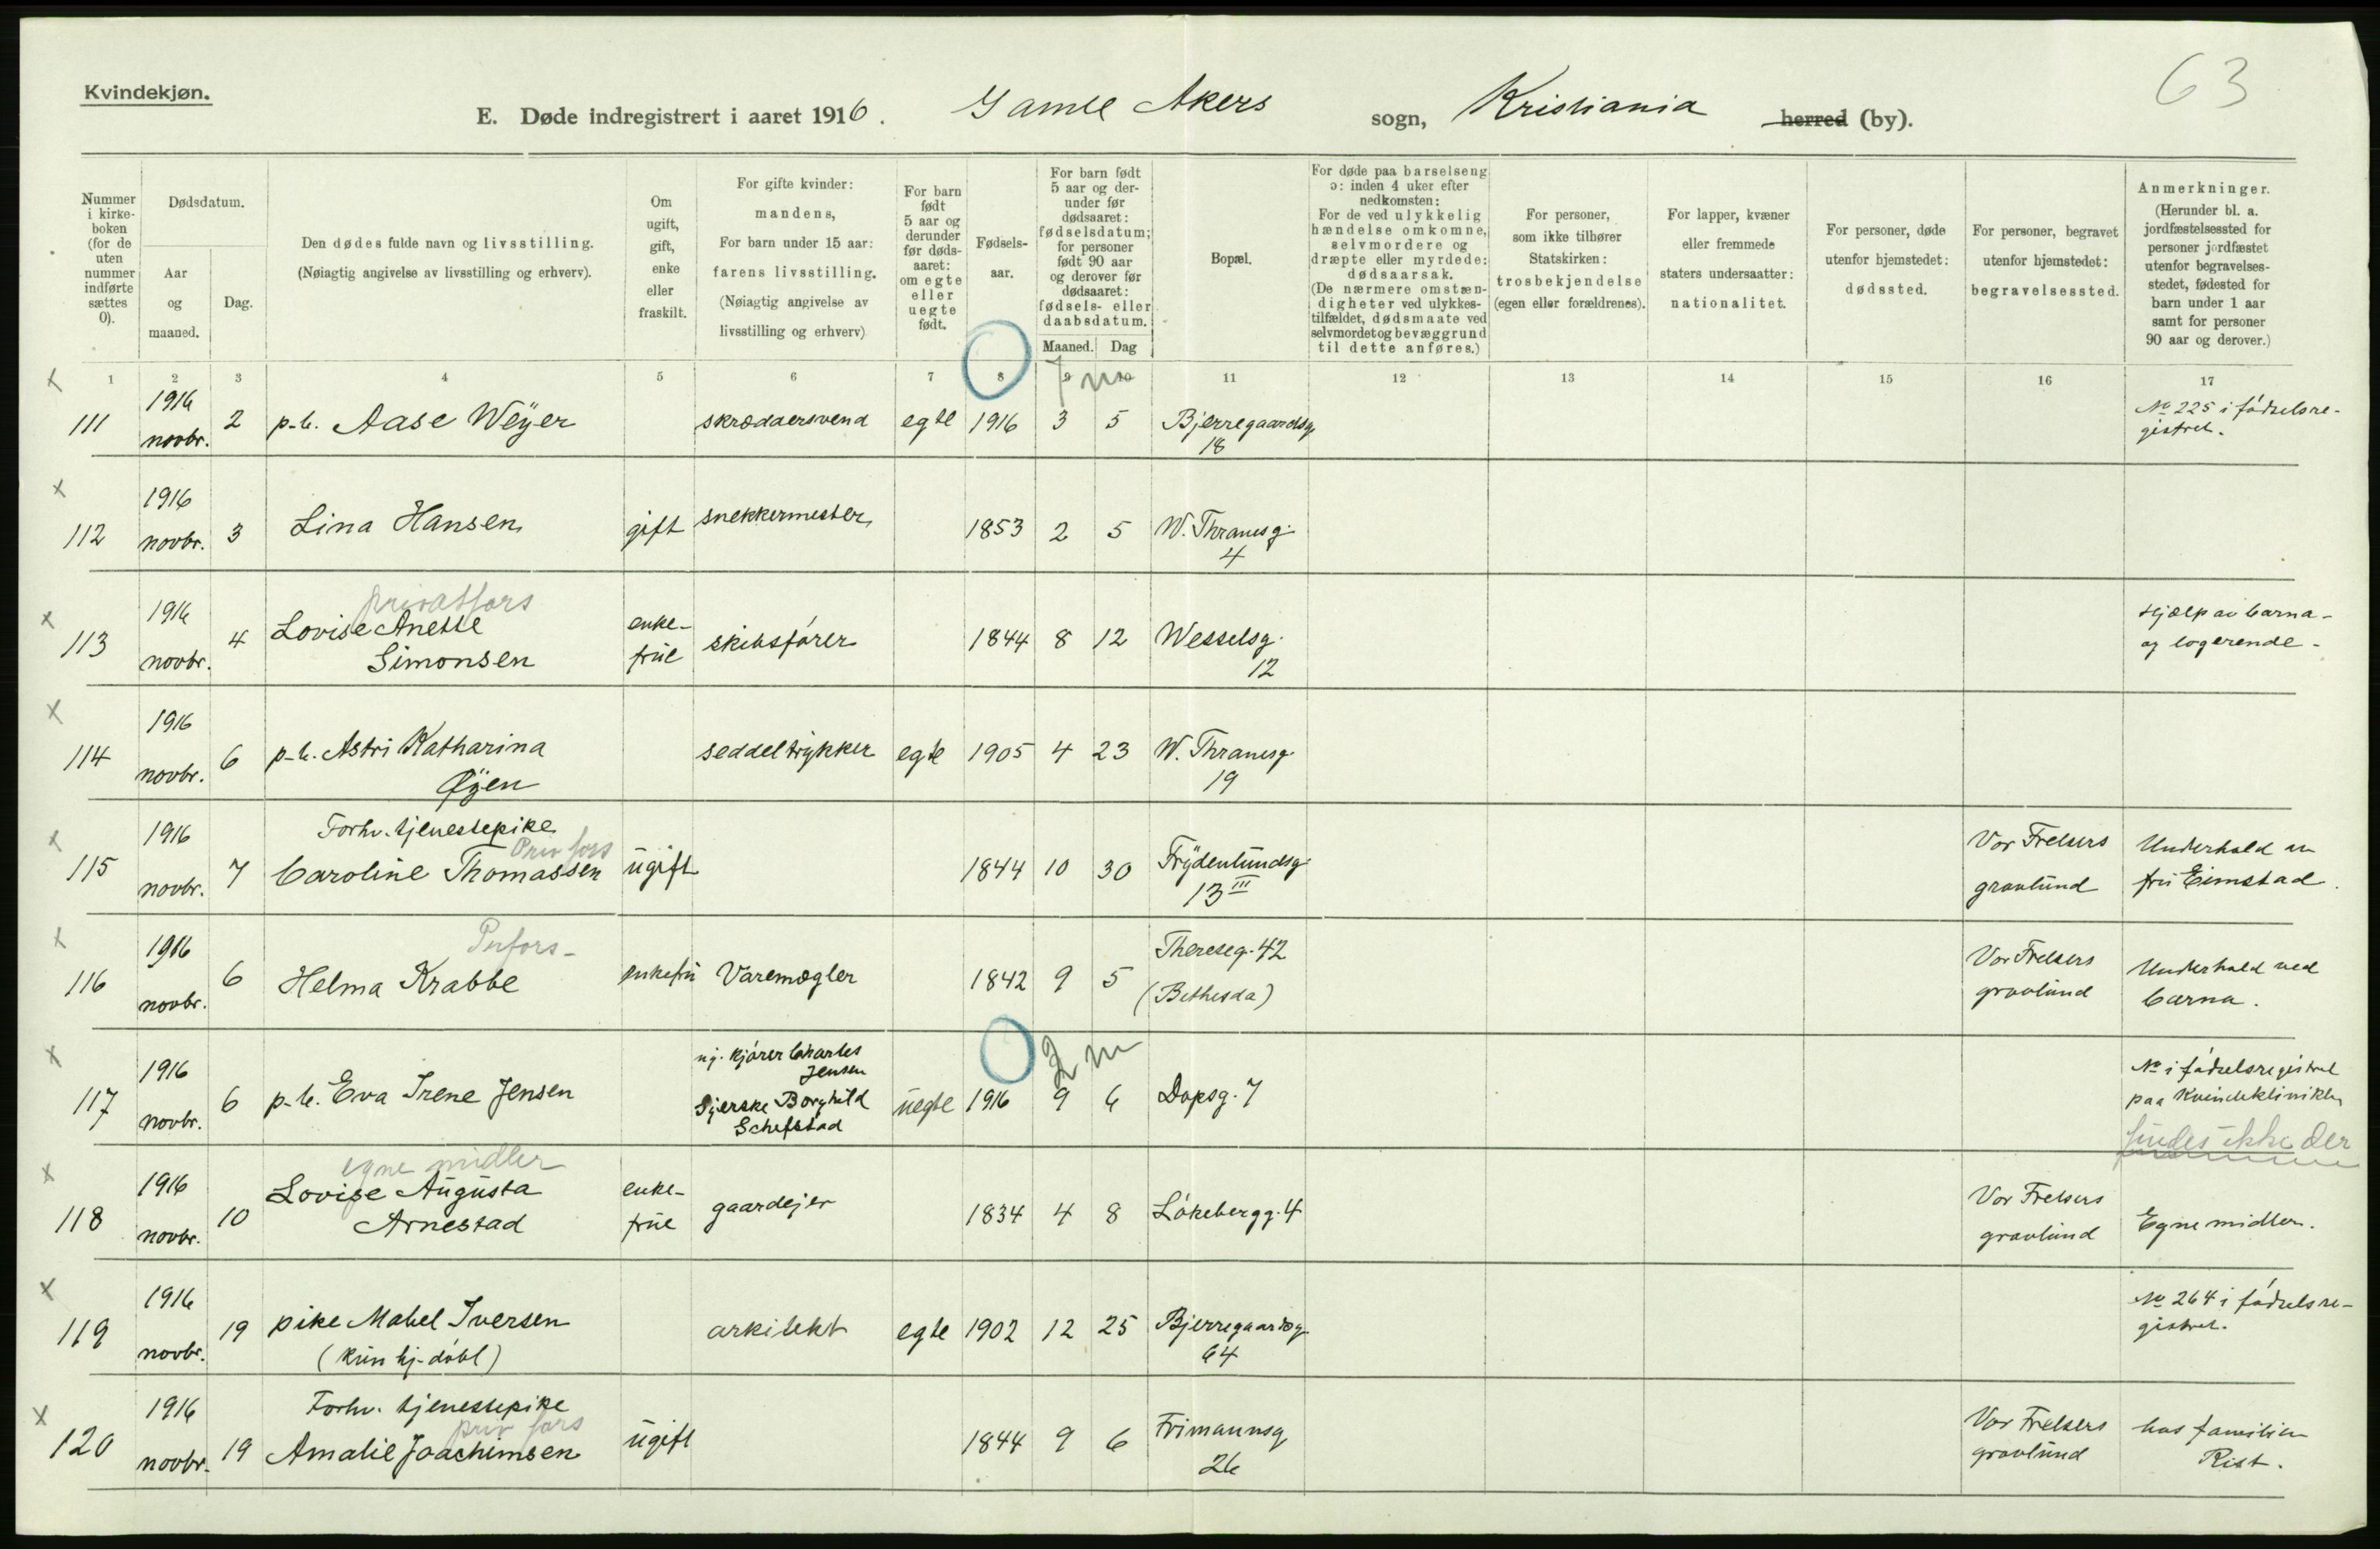 63
Kvindekjøn.
E. Døde indregistrert i aaret 1916. Gamle Akers sogn, Kristiania herred (by).
Nummer i kirke-boken (for de uten nummer indførte sættes 0).
Dødsdatum.
Aar og maaned.
Dag.
Den dødes fulde navn og livsstilling.
(Nøiagtig angivelse av livsstilling og erhverv).
Om ugift, gift, enke eller fraskilt.
For gifte kvinder: mandens, For barn under 15 aar: farens livsstilling. (Nøiagtig angivelse av livsstilling og erhverv)
For barn født 5 aar og derunder før døds-aaret: om egte eller uegte født.
Fødsels-aar.
For barn født 5 aar og der-under før dødsaaret: fødselsdatum; for personer født 90 aar og derover før dødsaaret: fødsels- eller daabsdatum.
Maaned. Dag
Bopæl.
For døde paa barselseng ɔ: inden 4 uker efter nedkomsten: For de ved ulykkelig hændelse omkomne, selvmordere og dræpte eller myrdede: dødsaarsak. (De nærmere omstæn-digheter ved ulykkes-tilfældet, dødsmaate ved selvmordet og bevæggrund til dette anføres.)
For personer, som ikke tilhører Statskirken: trosbekjendelse (egen eller forældrenes).
For lapper, kvæner eller fremmede staters undersaatter: nationalitet.
For personer, døde utenfor hjemstedet: dødssted.
For personer, begravet utenfor hjemstedet: begravelsessted.
Anmerkninger. (Herunder bl. a. jordfæstelsessted for personer jordfæstet utenfor begravelses-stedet, fødested for barn under 1 aar samt for personer 90 aar og derover.)
1 2 3 4 5 6 7 8 9 10 11 12 13 14 15 16 17
7 m
x 111 1916 novbr. 2 p-b. Aase Weÿer skræddersvend egte 1916 3 5 Bjerregaardsg. 18 No 225 i fødselsre-gistret.
x 112 1916 novbr. 3 Lina Hansen gift snekkermester 1853 2 5 W. Thranesg. 4
privatfors
x 113 1916 novbr. 4 Lovise Anette Simonsen enke-frue skibsfører 1844 8 12 Wesselsg. 12 Hjælp av barna- og logerende-
x 114 1916 novbr. 6 p-b. Astri Katharina Øÿen seddeltrykker egte 1905 4 23 W. Thranesg. 19
Priv fors
x 115 1916 novbr. 7 Forhv. tjenestepike Caroline Thomassen ugift 1844 10 30 Frÿdenlundsg. 13 III Vor Frelsers gravlund Underhold av fru Eimstad.
x 116 1916 novbr. 6 Helma Krabbe enkefru Varemægler 1842 9 5 Thereseg. 42 (Bethesda) Vor Frelsers gravlund Underhold ved barna.
2 m
x 117 1916 novbr. 6 p-b. Eva Irene Jensen ug. kjører Charles Jensen Syerske Borghild Schefstad uegte 1916 9 6 Dopsg. 7 No i fødselsregistret paa Kvindeklinikken
findes ikke der
egne midler
x 118 1916 novbr. 10 Lovise Augusta Arnestad enke-frue gaardejer 1834 4 8 Løkebergg. 4 Vor Frelsers gravlund Egne midler.
x 119 1916 novbr. 19 pike Mabel Iversen (kun hj-døbt) arkitekt egte 1902 12 25 Bjerregaardsg. 64 No 264 i fødselsre-gistret.
priv fors
x 120 1916 novbr. 19 Forhv. tjenestepike Amalie Joachimsen ugift 1844 9 6 Frimannsg 26 Vor Frelsers gravlund hos familien Rist.